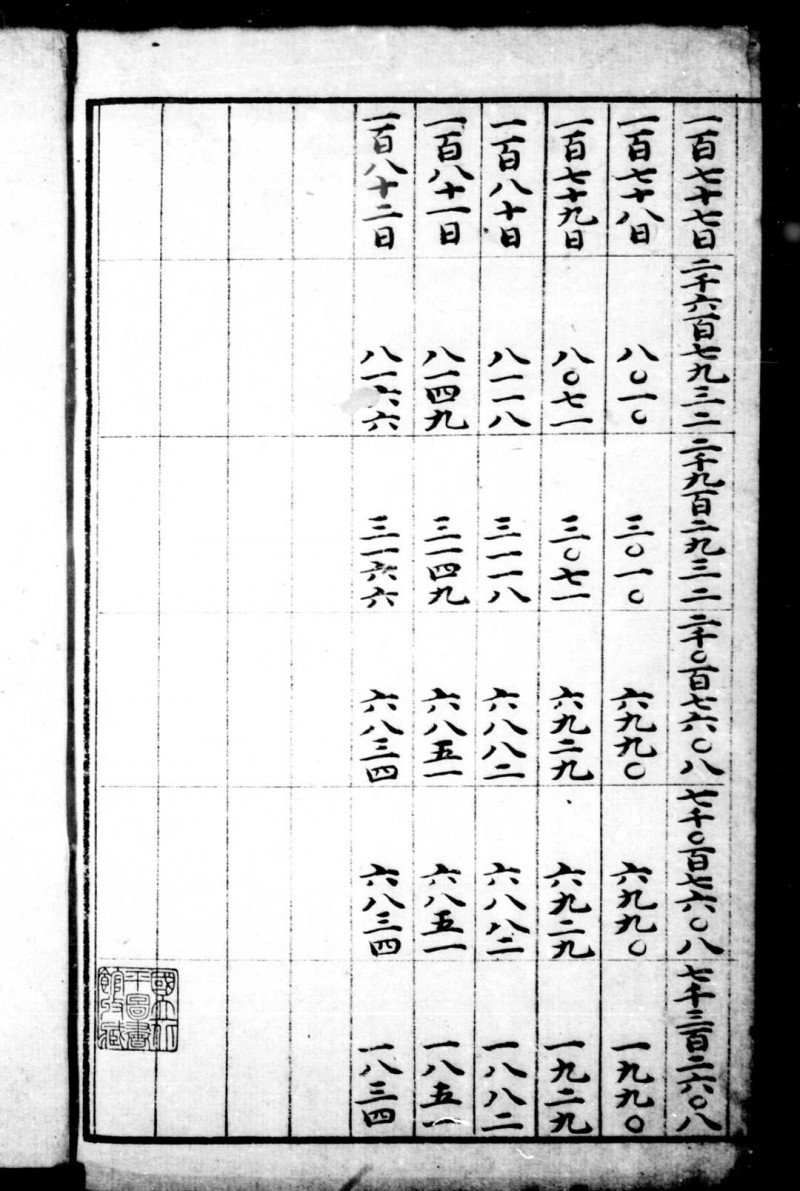 一百七十七日 二千六百七九三二 二千九百二九三二 二千〇百七六〇八 七千〇百七六〇八 七千三百二六〇八
一百七十八日 八〇一〇 三〇一〇 六九九〇 六九九〇 一九九〇
一百七十九日 八〇七一 三〇七一 六九二九 六九二九 一九二九
一百八十日 八一一八 三一一八 六八八二 六八八二 一八八二
一百八十一日 八一四九 三一四九 六八五一 六八五一 一八五一
一百八十二日 八一六六 三一六六 六八三四 六八三四 一八三四
國立北
平圖書
館收藏